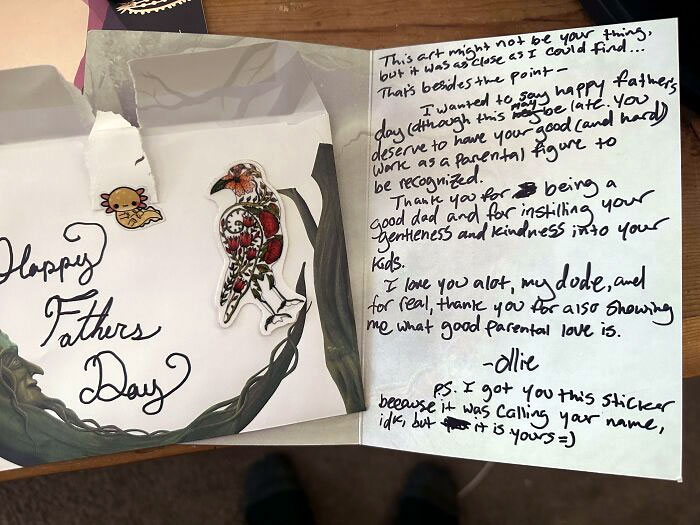 Happy
Fathers
Day
This art might not be your thing,
but it was as close as I could find...
That's besides the point-
I wanted to say happy father's
day (although this may be late. You
deserve to have your good (and hard)
work as a parental figure to
be recognized.
Thank you for being a
good dad and for instilling your
gentleness and kindness into your
kids.
I love you alot, my dude, and
for real, thank you for also showing
me what good parental love is.
-Ollie
P.S. I got you this sticker
because it was calling your name,
idk, but it is yours =)